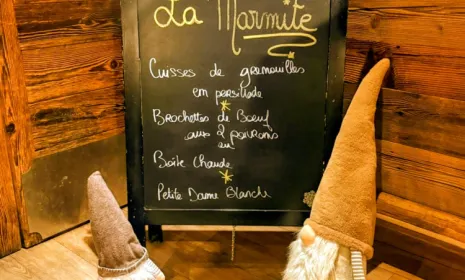 La Marmite
Cuisses de grenouilles
en persillade
Brochettes de Boeuf
aux 2 poivrons
ou
Boîte Chaude
Petite Dame Blanche